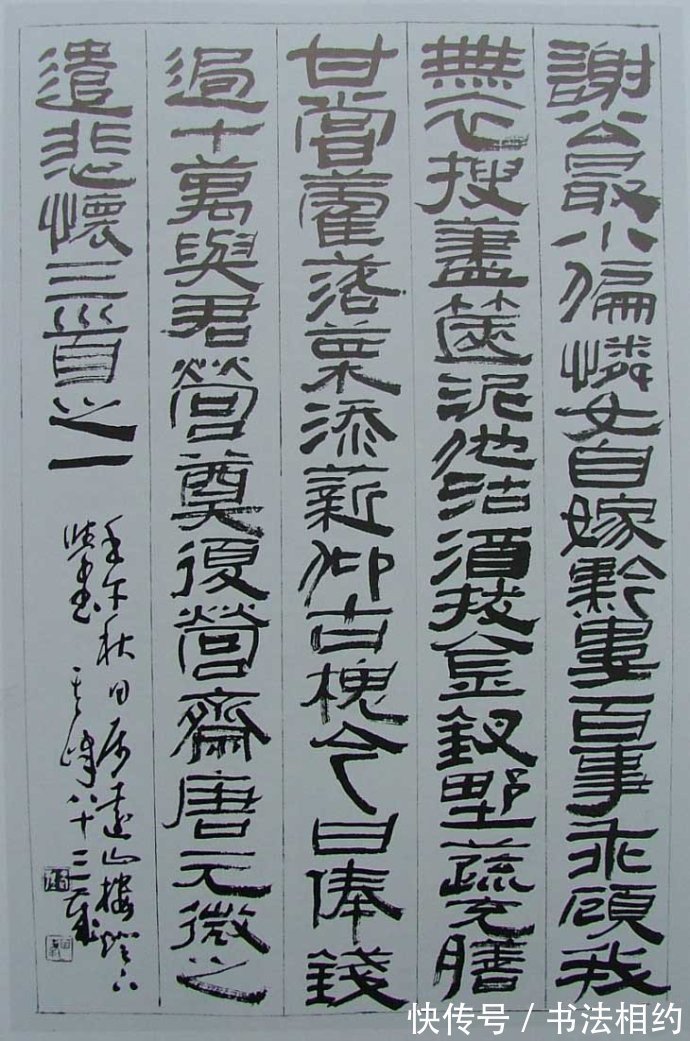 謝公最小偏憐女自嫁黔婁百事乖顧我
無衣搜藎篋泥他沽酒拔金釵野蔬充膳
甘嘗藿落葉添薪仰古槐今日俸錢
過十萬與君營奠復營齋唐元微之
遣悲懷三首之一
秋日 山樓燈下
書 峰八十二歲
快传号 / 书法相约